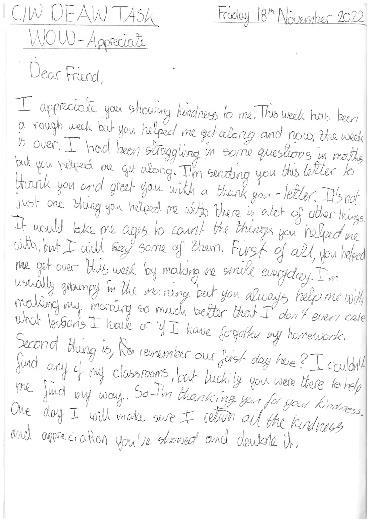 C/W DEAW TASK Friday 18th November 2022
WOW - Appreciate
Dear Friend,
I appreciate you showing kindness to me. This week has been
a rough week but you helped me get along and now, the week
is over. I had been struggling in some questions in maths
but you helped me go along. I'm sending you this letter to
thank you and greet you with a thank you - letter. It's not
just one thing you helped me with there is alot of other things
It would take me ages to count the things you helped me
with, but I will say some of them. First of all, you helped
me get over this week by making me smile everyday. I'm
usually grumpy in the morning but you always help me with
making my morning so much better that I don't even care
what lessons I have or if I have forgotten my homework.
Second thing is, remember our first day here? I couldn't
find any of my classrooms, but luckily you were there to help
me find my way. So I'm thanking you for your kindness.
One day I will make sure I return all the kindness
and appreciation you've showed and double it.